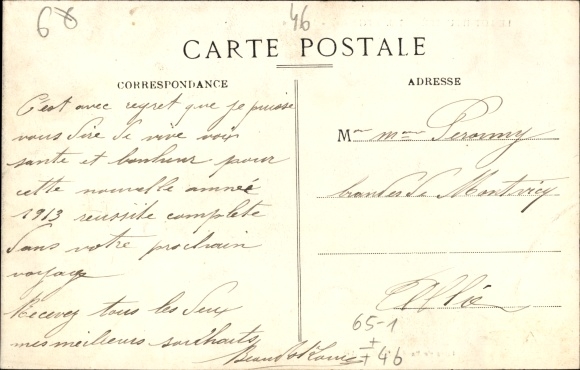 68
46
CARTE POSTALE
CORRESPONDANCE
C'est avec regret que je puisse
vous dire de vive voix
santé et bonheur pour
cette nouvelle année
1913 réussite complete
dans votre prochain
voyage
Recevez tous les deux
mes meilleurs souhaits
ADRESSE
M
de Montvicq
Allié
65-1
46